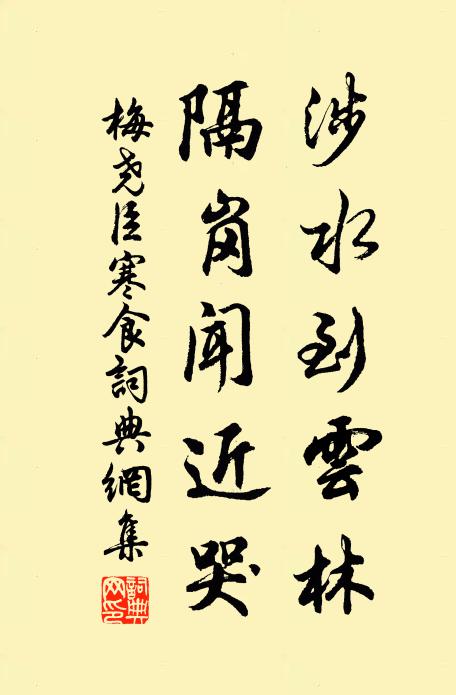 涉水到雲林
隔崗闻近哭
梅尧臣寒食詞典網集
詞典网印